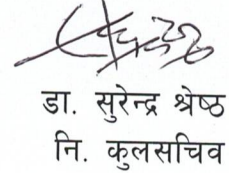 डा. सुरेन्द्र श्रेष्ठ
नि. कुलसचिव